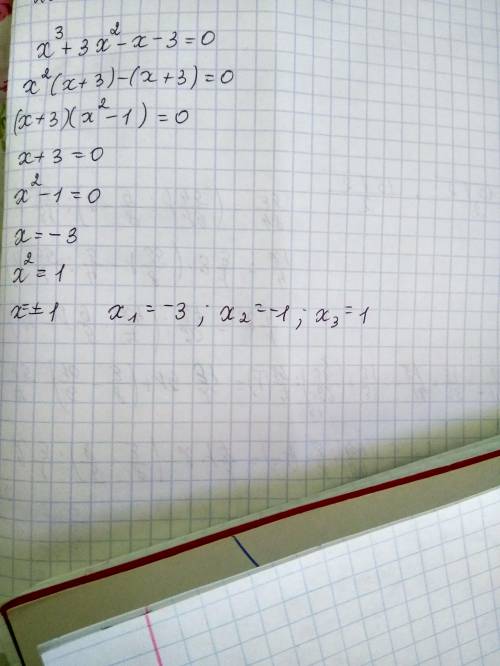 x³ + 3x² - x - 3 = 0
x²(x + 3) - (x + 3) = 0
(x + 3)(x² - 1) = 0
x + 3 = 0
x² - 1 = 0
x = -3
x² = 1
x = ± 1 x₁ = -3 ; x₂ = -1 ; x₃ = 1